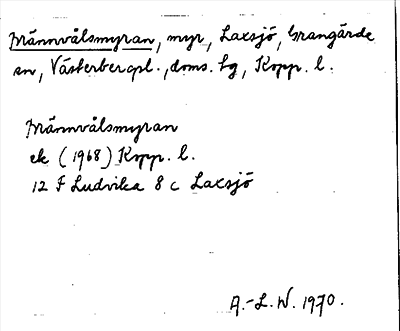 Männvålsmyran, myr, Laxsjö, Grangärde
sn, Västerbergsl., doms. hg, Kopp. l.
Männvålsmyran
ek (1968) Kopp. l.
12 F Ludvika 8 c Laxsjö
A.-L. W. 1970.